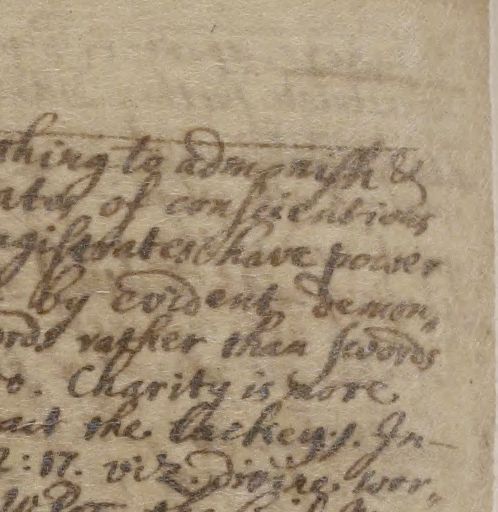 thing to admoniſh &
ates of conſcientious
agiſtrates have power
by evident demon„
ords rather than ſwords
to. Charity is more
act the lackey.s. Jn-
2:17. viz. divine wor„
the